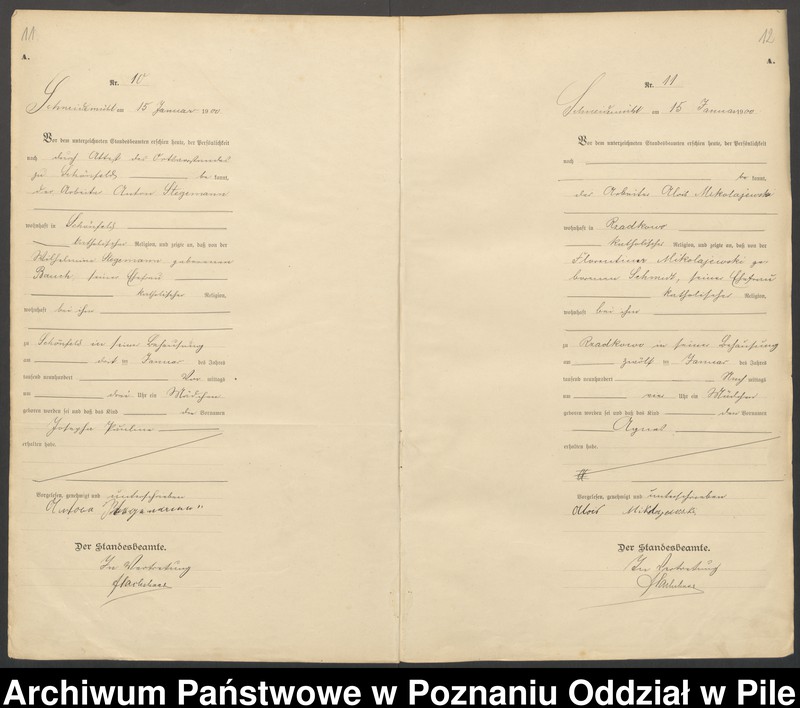 11
A.
Nr. 10
Schneidemühl am 15 Januar 1900
Vor dem unterzeichneten Standesbeamten erschien heute, der Persönlichkeit
nach durch Attest des Ortsvorstandes
zu Schönfeld be kannt,
der Arbeiter Anton Stegemann
wohnhaft in Schönfeld
katholischer Religion, und zeigte an, daß von der
Wilhelmine Stegemann geborenen
seiner Ehefrau
katholischer Religion,
wohnhaft bei ihm
zu Schönfeld in seiner Behausung
am ten Januar des Jahres
tausend neunhundert Vor mittags
um drei Uhr ein Mädchen
geboren worden sei und daß das Kind die Vornamen
Josepha Pauline
erhalten habe.
Vorgelesen, genehmigt und unterschrieben
Der Standesbeamte.
In Vertretung
12
A.
Nr. 11
Schneidemühl am 15 Januar 1900
Vor dem unterzeichneten Standesbeamten erschien heute, der Persönlichkeit
nach
be kannt,
der Arbeiter Alois Mikolajewski
wohnhaft in Rzadkowo
katholischer Religion, und zeigte an, daß von der
Florentine Mikolajewski ge
borenen Schmidt, seiner Ehefrau
katholischer Religion,
wohnhaft bei ihm
zu Rzadkowo in seiner Behausung
am zwölf ten Januar des Jahres
tausend neunhundert Nach mittags
um vier Uhr ein Mädchen
geboren worden sei und daß das Kind den Vornamen
erhalten habe.
Vorgelesen, genehmigt und unterschrieben
Alois Mikolajewski
Der Standesbeamte.
In Vertretung
Archiwum Państwowe w Poznaniu Oddział w Pile